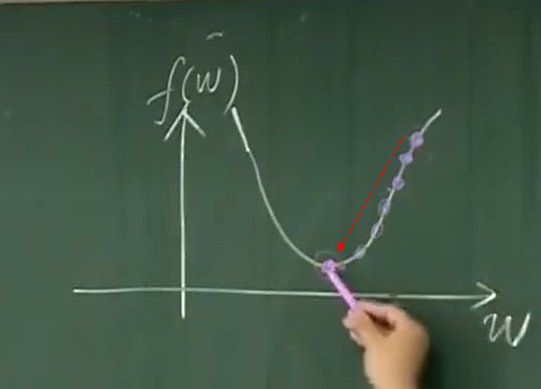 f(w)
w